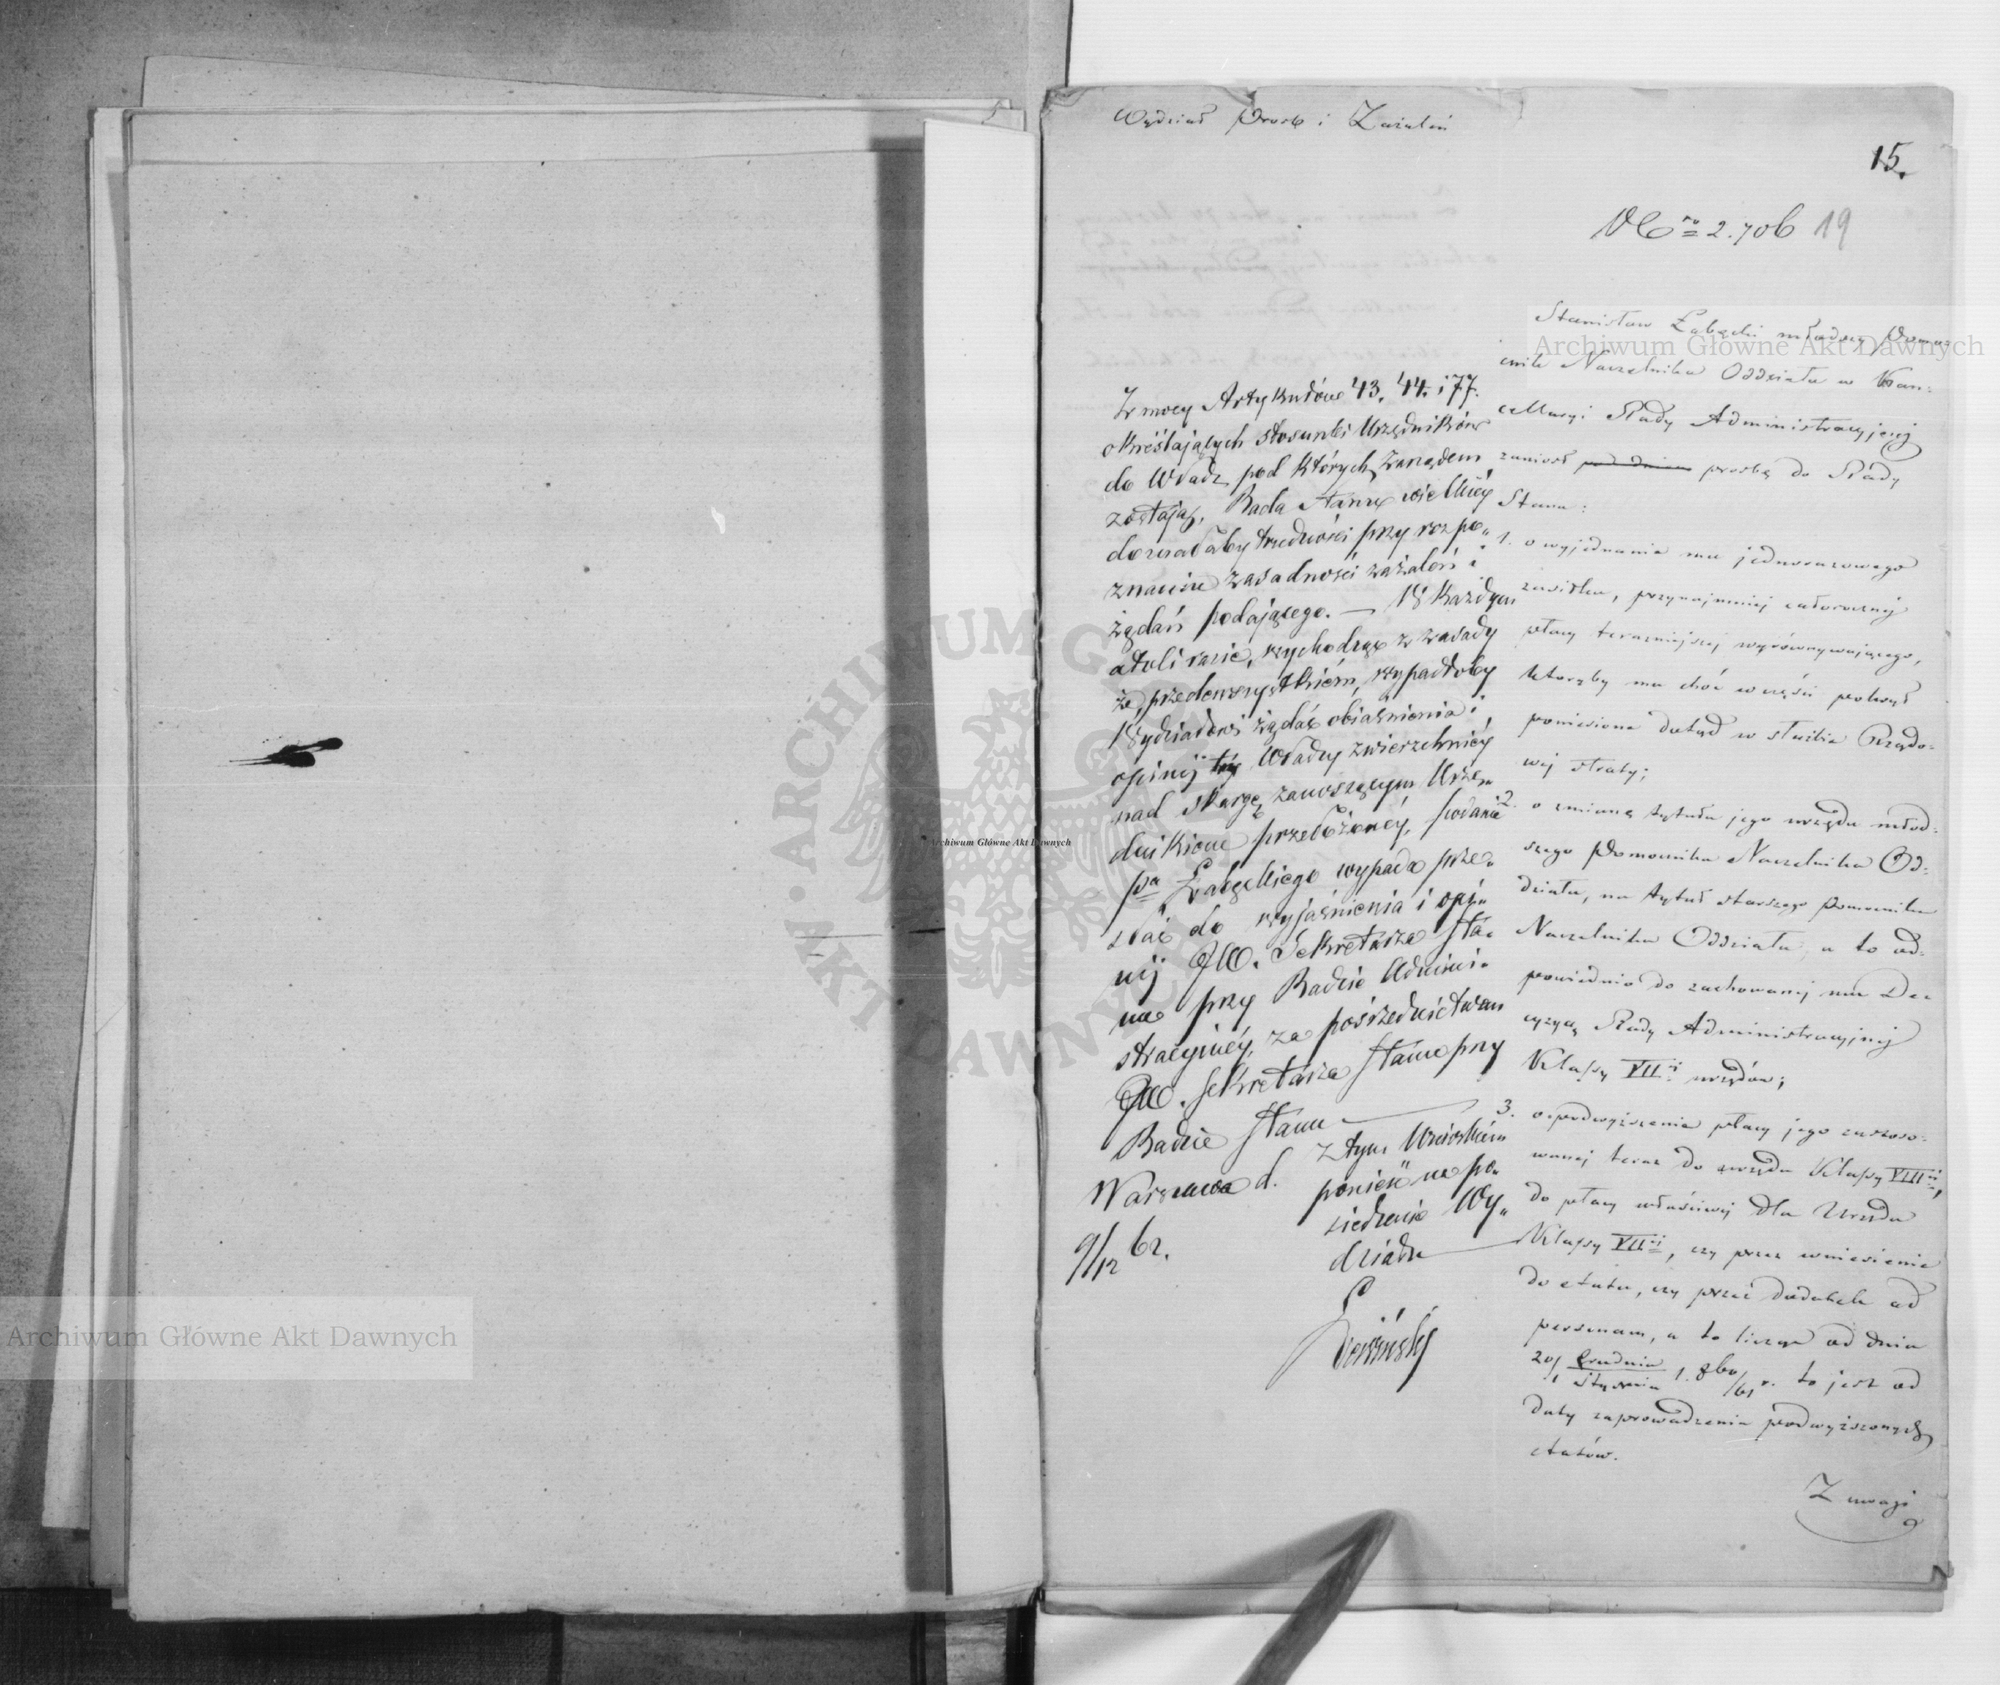 Wydział Prośb i Zażaleń
15.
Nro 2.706 19
Stanisław Łabęcki młodszy Pomo-
cnik Naczelnika Oddziału w Kan-
cellaryi Rady Administracyjnej
zaniosł prosbę do Rady
Stanu:
1. o wyjednanie mu jednorazowego
zasiłku, przynajmniej całorocznej
płacy terazniejszej wyrównywającego,
któryby mu choć w części pokrył
poniesione dotąd w służbie Rządo-
wej straty;
2. o zmianę tytułu jego urzędu młod-
szego Pomocnika Naczelnika Od-
działu, na tytuł starszego Pomocnika
Naczelnika Oddziału, a to od-
powiednio do zachowanej mu De-
cyzyą Rady Administracyjnej
Klassy VII-i urzędów;
3. o podwyższenie płacy jego zastoso-
wanej teraz do urzędu Klassy VIII-i,
do płacy właściwej dla Urzędu
Klassy VII-i, czy przez wniesienie
do etatu, czy przez dodatek ad
personam, a to licząc od dnia
20/1 Grudnia/Stycznia 1860/61 r. to jest od
daty zaprowadzenia podwyższonych
etatów.
Z uwagi
Z mocy Artykułów 43. 44. i 77.
określających stosunki Urzędników
do Władz pod których zarządem
zostają, Rada Stanu wielkiéj
doznałaby trudności przy rozpo„
znaniu zasadności zażaleń i
żądań podającego. — W każdym
atoli razie, wychodząc z zasady
że, przedewszystkiém, wypadłoby
Wydziałowi żądać objaśnienia i
opinij Władzy zwierzchniéj
nad skargę zanoszącym Urzę„
dnikiem przełożonéj, podanie
Pa Łabęckiego wypada prze„
słać do wyjaśnienia i opi„
nij JW. Sekretarza Sta-
nu przy Radzie Admini-
stracyjnéj, za pośrednictwem
JW. Sekretarza Stanu przy
Radzie Stanu
Warszawa d.
9/12 62.
z tym Wnioskiem
ponieść na po„
siedzenie Wy„
działu
Archiwum Główne Akt Dawnych
Archiwum Główne Akt Dawnych
Archiwum Główne Akt Dawnych